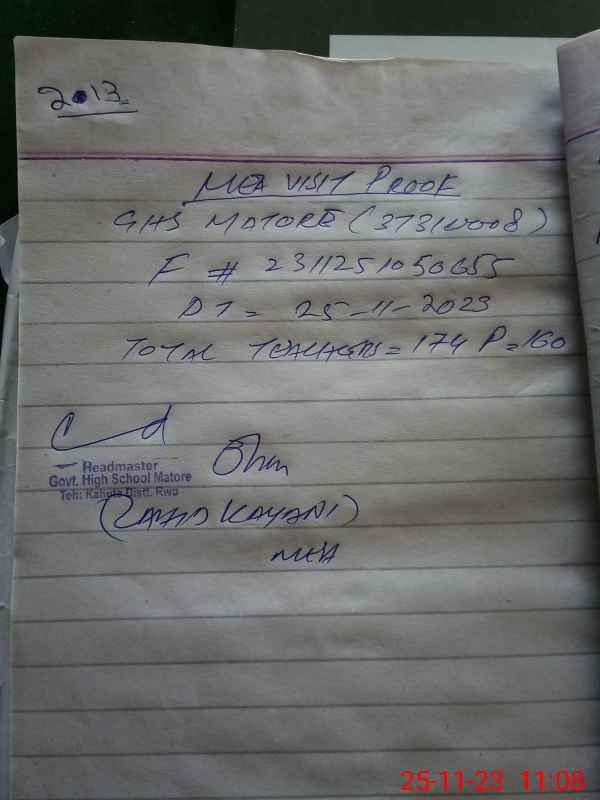 2013
MEA VISIT PROOF
GHS MATORE (37310008)
F # 2311251050655
DT = 25-11-2023
TOTAL TEACHERS = 174 P = 160
Headmaster
Govt. High School Matore
Teh: Kahuta Distt. Rwp
(ZAHID KAYANI)
MEA
25-11-23 11:08